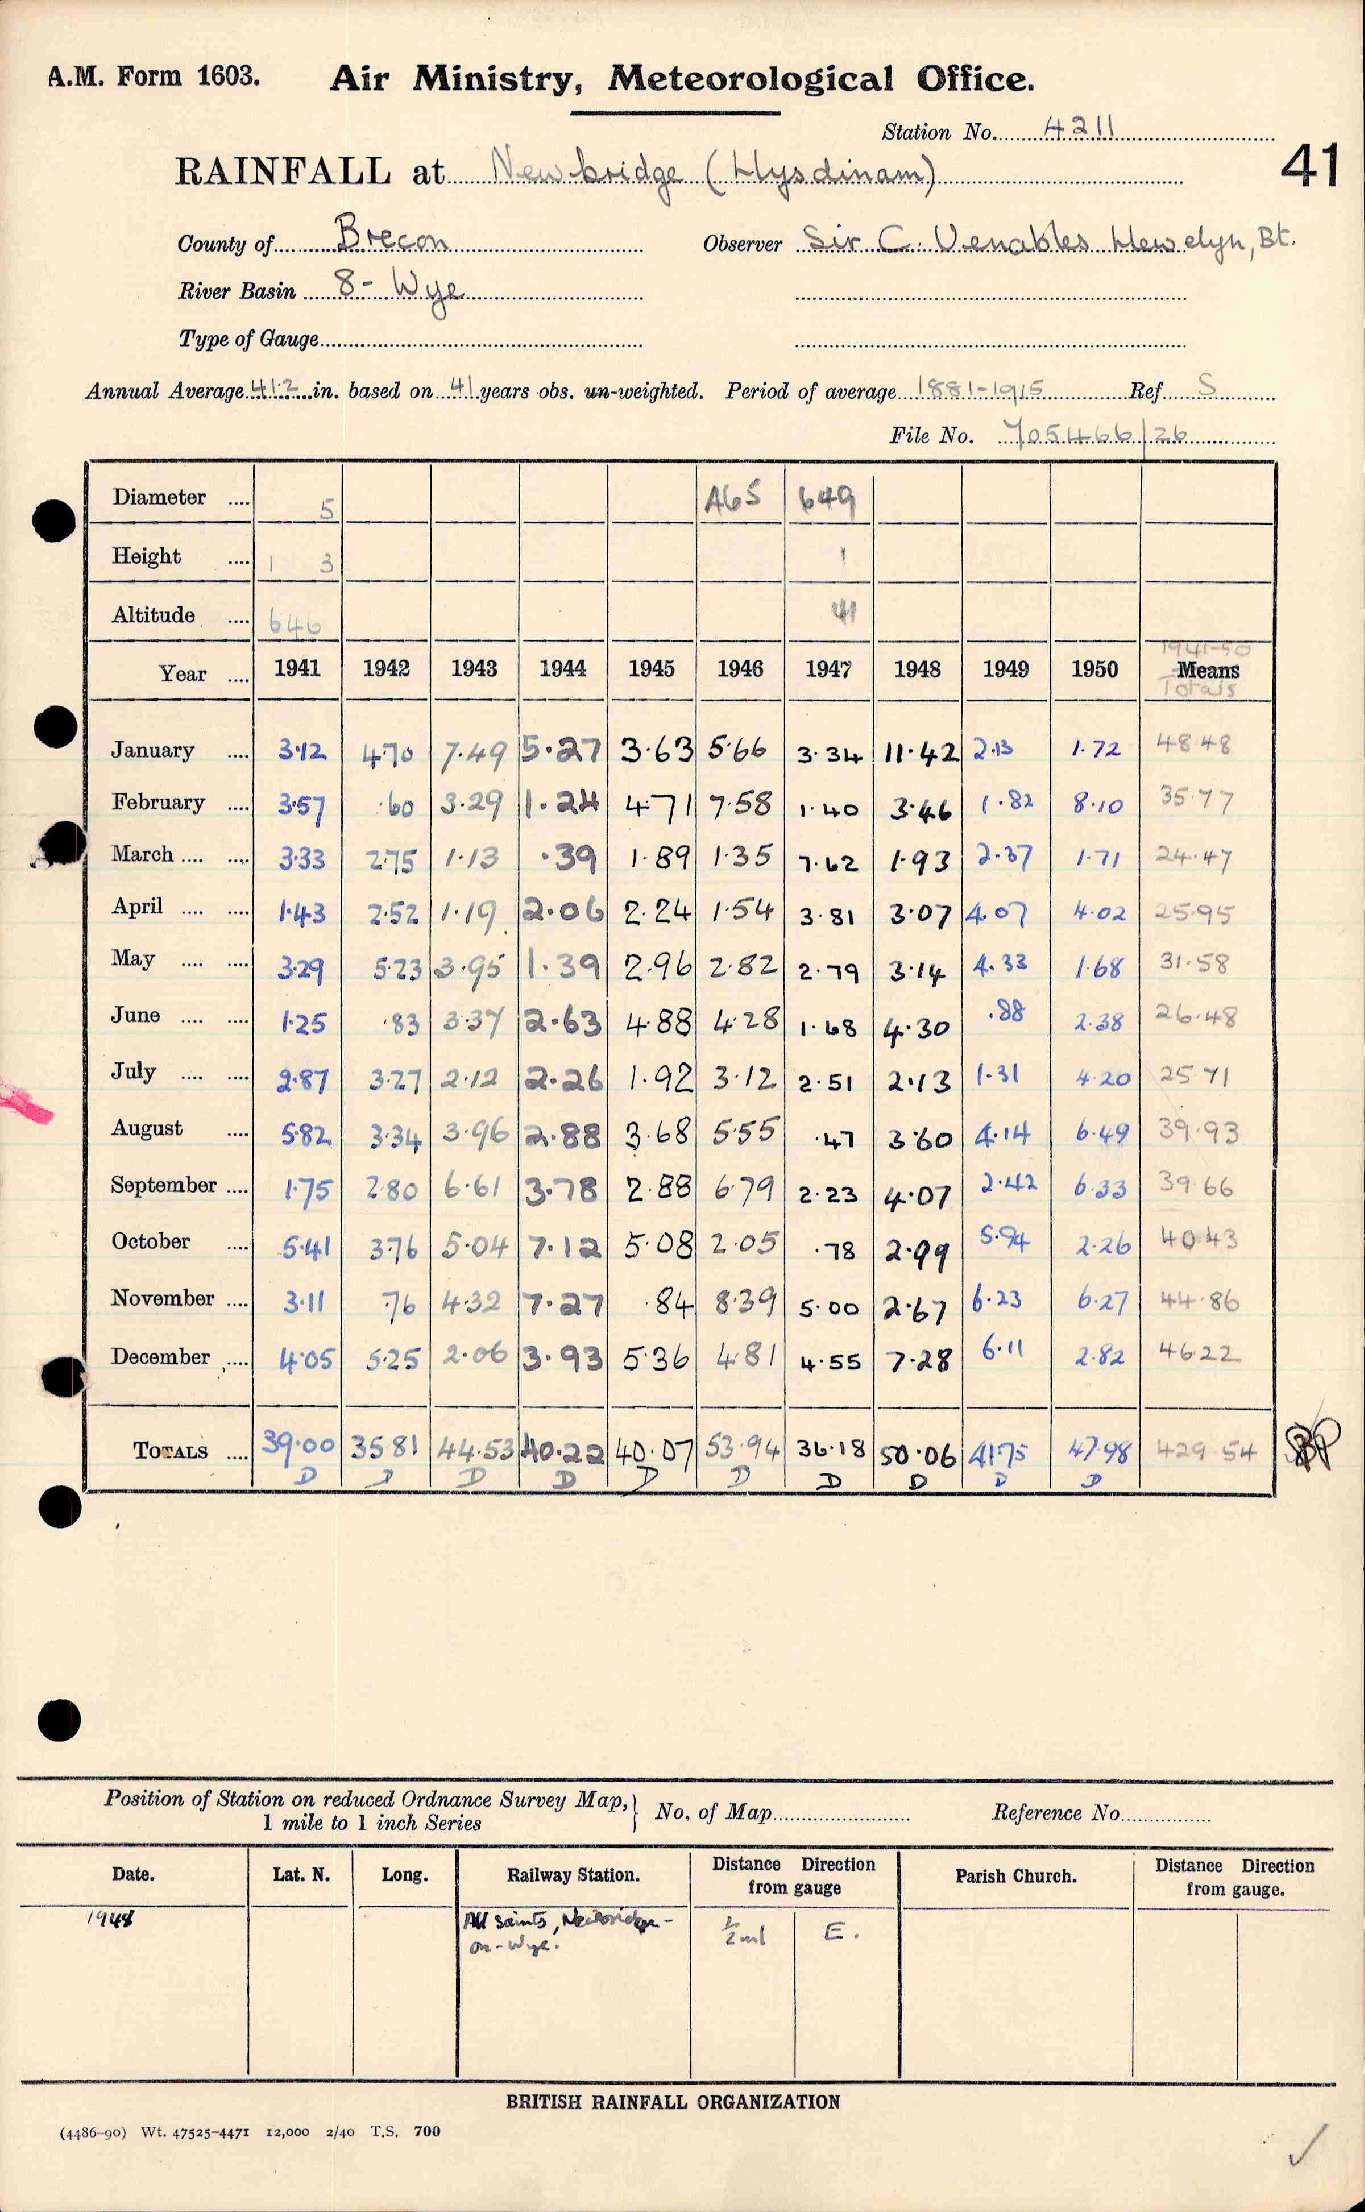 A.M. Form 1603. Air Ministry, Meteorological Office.
Station No. 4211
41
RAINFALL at Newbridge (Llysdinam)
County of Brecon Observer Sir C. Venables Llewelyn, Bt.
River Basin 8- Wye
Type of Gauge
Annual Average 41.2 in. based on 41 years obs. un-weighted. Period of average 1881-1915 Ref S
File No. 705466/26
Diameter .... 5 A65 649
Height .... 1 3 1
Altitude .... 646 41
1941-50
Year .... 1941 1942 1943 1944 1945 1946 1947 1948 1949 1950 Means
Totals
January .... 3.12 4.70 7.49 5.27 3.63 5.66 3.34 11.42 2.13 1.72 48.48
February .... 3.57 .60 3.29 1.24 4.71 7.58 1.40 3.46 1.82 8.10 35.77
March .... .... 3.33 2.75 1.13 .39 1.89 1.35 7.62 1.93 2.37 1.71 24.47
April .... .... 1.43 2.52 1.19 2.06 2.24 1.54 3.81 3.07 4.07 4.02 25.95
May .... .... 3.29 5.23 3.95 1.39 2.96 2.82 2.79 3.14 4.33 1.68 31.58
June .... .... 1.25 .83 3.37 2.63 4.88 4.28 1.68 4.30 .88 2.38 26.48
July .... .... 2.87 3.27 2.12 2.26 1.92 3.12 2.51 2.13 1.31 4.20 25.71
August .... 5.82 3.34 3.96 2.88 3.68 5.55 .47 3.60 4.14 6.49 39.93
September .... 1.75 2.80 6.61 3.78 2.88 6.79 2.23 4.07 2.42 6.33 39.66
October .... 5.41 3.76 5.04 7.12 5.08 2.05 .78 2.99 5.94 2.26 40.43
November .... 3.11 .76 4.32 7.27 .84 8.39 5.00 2.67 6.23 6.27 44.86
December .... 4.05 5.25 2.06 3.93 5.36 4.81 4.55 7.28 6.11 2.82 46.22
TOTALS .... 39.00 35.81 44.53 40.22 40.07 53.94 36.18 50.06 41.75 47.98 429.54
D D D D D D D D D D
Position of Station on reduced Ordnance Survey Map, 1 mile to 1 inch Series } No. of Map Reference No.
Date. Lat. N. Long. Railway Station. Distance Direction from gauge Parish Church. Distance Direction from gauge.
1948 All Saints, Newbridge-
on-Wye. ½ ml E.
BRITISH RAINFALL ORGANIZATION
(4486-90) Wt. 47525-4471 12,000 2/40 T.S. 700